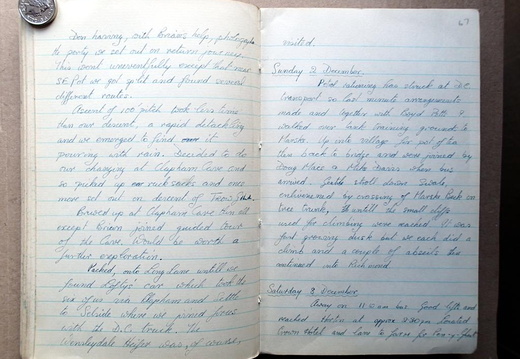 Don having, with Brian's help, photographed
the party we set out on return journey.
This went uneventfully except that near
S.E. Pot we got split and found several
different routes.
Ascent of 100' pitch took less time
than our descent, a rapid detackling
and we emerged to find it
pouring with rain. Decided to do
our changing at Clapham Cave and
so picked up ruck sacks and once
more set out on descent of Trow Ghyll.
Brewed up at Clapham Cave then all
except Brian joined guided tour
of the Cave. Would be worth a
further exploration.
Packed, onto Long Lane until we
found car which took the
six of us via Clapham and Settle
to Selside where we joined forces
with the D.C. truck. The
Wensleydale Heifer was, of course,
67
visited.
Sunday 2 December.
Petrol rationing has struck at D.C.
transport so last minute arrangements
made and together with Boyd Potts I
walked over tank training grounds to
Marske. Up into village for pot of tea
then back to bridge and were joined by
Doug Mace & Mike when bus
arrived. Gentle stroll down Swale,
enlivened by crossing of Marske Beck on
tree trunk, until the small cliffs
used for climbing were reached. It was
fast growing dusk but we each did a
climb and a couple of abseils then
continued into Richmond.
Saturday 8 December
Away on 11.0 am bus. Good lifts and
reached at approx 3.30 pm. Located
Crown Hotel and